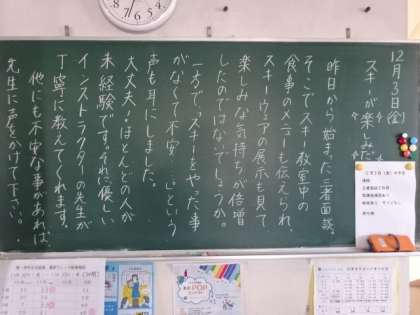 12月3日(金)
スキーが楽しみだ
昨日から始まった三者面談。
そこでスキー教室中の
食事のメニューも伝えられ、
スキーウェアの展示も見て
楽しみな気持ちが倍増
したのではないでしょうか。
一方で、「スキーをやった事
がなくて不安……」という
声も耳にしました。
大丈夫。ほとんどの人が
未経験です。それに優しい
インストラクターの先生が
丁寧に教えてくれます。
他にも不安な事があれば、
先生に声をかけて下さい。